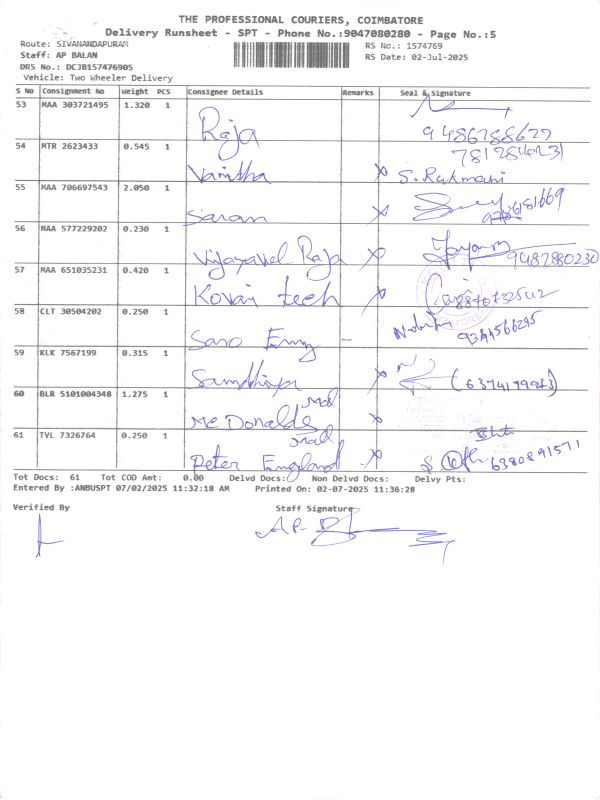 THE PROFESSIONAL COURIERS, COIMBATORE
Delivery Runsheet - SPT - Phone No.:9047080280 - Page No.:5
Route: SIVANANDAPURAM
RS No.: 1574769
Staff: AP BALAN
RS Date: 02-Jul-2025
DRS No.: DCJB157476905
Vehicle: Two Wheeler Delivery
S No Consignment No Weight PCS Consignee Details Remarks Seal & Signature
53 MAA 303721495 1.320 1 Raja
54 MTR 2623433 0.545 1 Vanitha S. Rukmani
55 MAA 706697543 2.050 1 Saran
56 MAA 577229202 0.230 1 Vijayavel Raja 9487880230
57 MAA 651035231 0.420 1 Kovai tech
58 CLT 30504202 0.250 1 Saro Eng - 9344566295
59 KLK 7567199 0.315 1
60 BLR 5101004348 1.275 1 Mc Donalds Mal
61 TVL 7326764 0.250 1 Peter England Mal 6380891571
Tot Docs: 61 Tot COD Amt: 0.00 Delvd Docs: Non Delvd Docs: Delvy Pts:
Entered By :ANBUSPT 07/02/2025 11:32:18 AM Printed On: 02-07-2025 11:36:28
Verified By Staff Signature